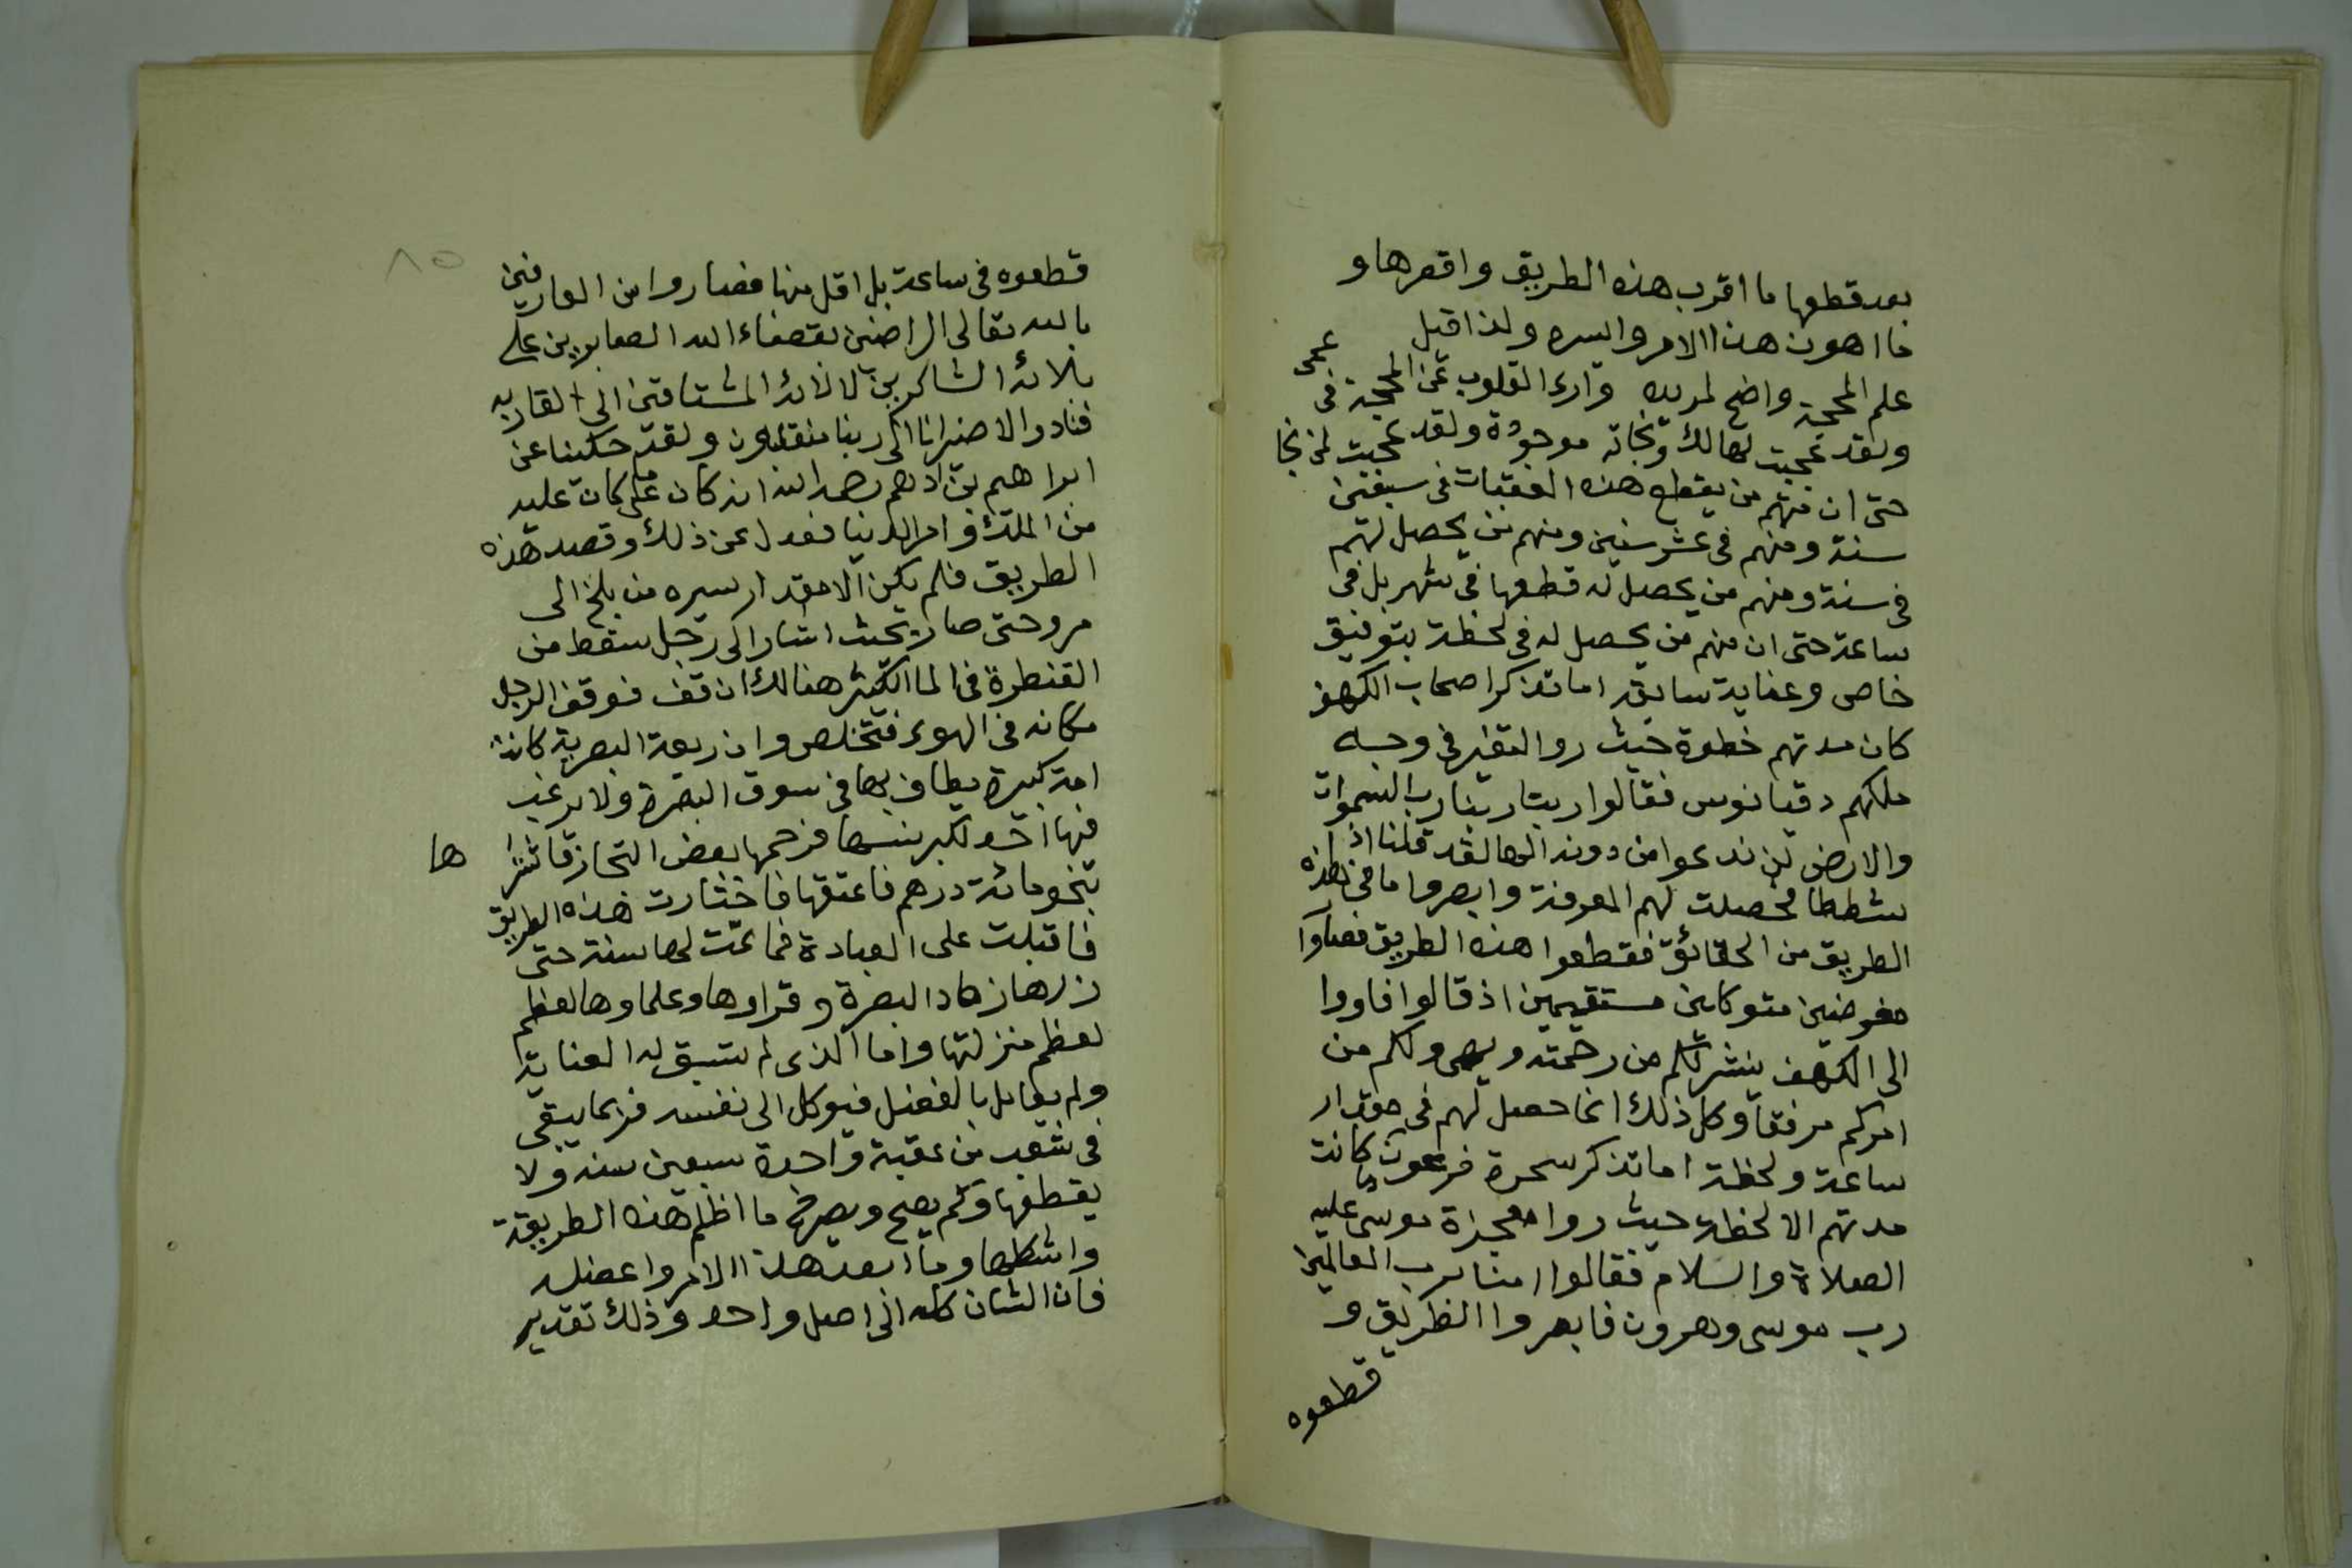 بعد قطعها ما اقرب هذه الطريق واقصرها و
ما اهون هذا الامر وايسره ولذا قيل
علم المحجة واضح لمريده وارى القلوب عن المحجة فى عمى
ولقد عجبت لهالك ونجاته موجودة ولقد عجبت لمن نجا
حتى ان منهم من يقطع هذه العقبات فى سبعين
سنة ومنهم فى عشر سنين ومنهم من يحصل لهم
فى سنة ومنهم من يحصل له قطعها فى شهر بل فى
ساعة حتى ان منهم من يحصل له فى لحظة بتوفيق
خاص وعناية سابقه اما تذكر اصحاب الكهف
كان مدتهم خطوة حيث روا التغير فى وجه
ملكهم دقيانوس فقالوا ربنا ربنا رب السموات
والارض لن ندعوا من دونه الها لقد قلنا اذا
شططا فحصلت لهم المعرفة وابصروا ما فى هذه
الطريق من الحقائق فقطعوا هذه الطريق فصاروا
مفوضين متوكلين مستقيمين اذ قالوا فاووا
الى الكهف ينشر لكم من رحمته ويهيى لكم من
امركم مرفقا وكل ذلك انما حصل لهم فى مقدار
ساعة ولحظة اما تذكر سحرة فرعون ما كانت
مدتهم الا لحظة حيث روا معجزة موسى عليه
الصلاة والسلام فقالوا امنا برب العالمين
رب موسى وهرون فابصروا الطريق و
قطعوه
٨٥
قطعوه فى ساعة بل اقل منها فصاروا من العارفين
بالله تعالى الراضين بقضاء الله الصابرين على
بلائه الشاكرين لالائه المشتاقين الى لقائه
فنادوا لا ضير انا الى ربنا منقلبون ولقد حكينا عن
ابراهيم بن ادهم رحمه الله انه كان على ما كان عليه
من الملك وامر الدنيا فعدل عن ذلك وقصد هذه
الطريق فلم يكن الا مقدار سيره من بلخ الى
مرو حتى صار بحيث اشار الى رجل سقط من
القنطرة فى الما الكثير هنالك ان قف فوقف الرجل
مكانه فى الهوى فتخلص وان ربعة البصرية كانت
امة كبيرة يطاف بها فى سوق البصرة ولا يرغب
فيها احد لكبر سنها فرحمها بعض التجار فاشترا ها
بنحو مائة درهم فاعتقها فاختارت هذه الطريق
فاقبلت على العبادة فما تمت لها سنة حتى
زارها زهاد البصرة وقراوها وعلماوها لعظم
لعظم منزلتها واما الذى لم تسبق له العناية
ولم يعامل بالفضل فيوكل الى نفسه فربما يبقى
فى شعب من عقبة واحدة سبعين سنه ولا
يقطعها وكم يصيح ويصرخ ما اظلم هذه الطريقة
واشكلها وما ابعد هذا الامر واعضله
فان الشان كله الى اصل واحد وذلك تقدير